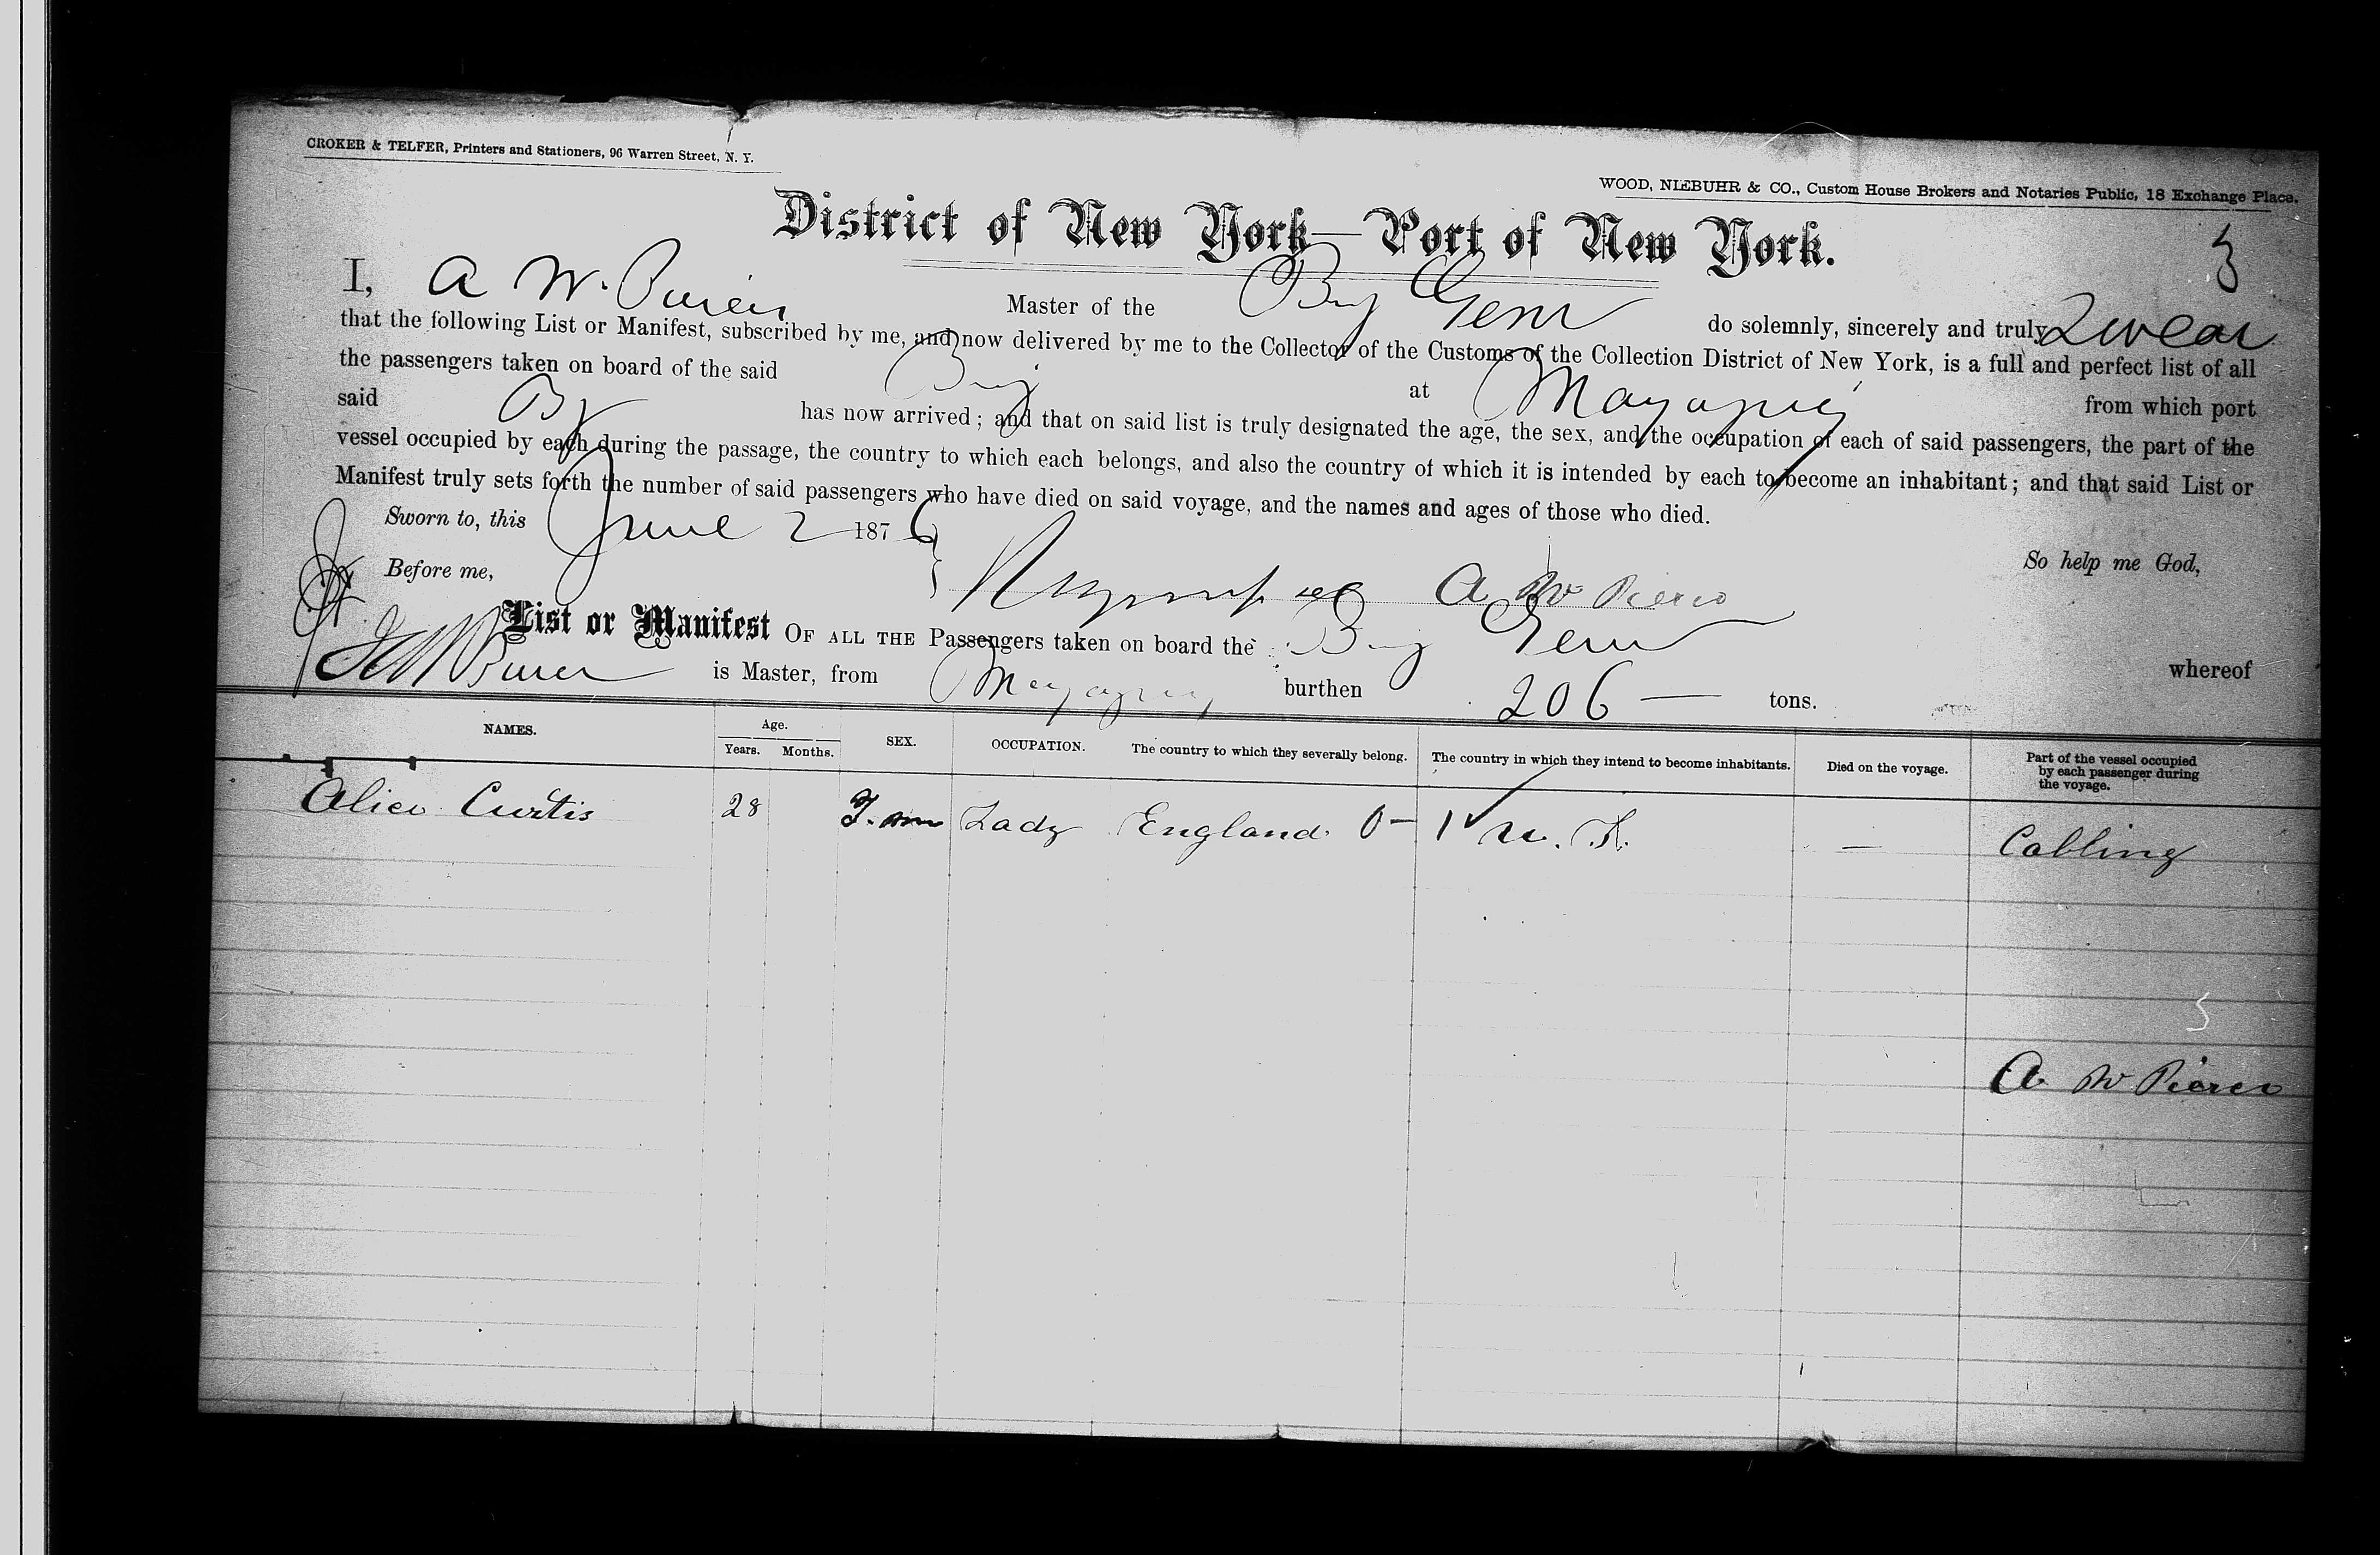 CROKER & TELFER, Printers and Stationers, 96 Warren Street, N. Y.
WOOD, NIEBUHR & CO., Custom House Brokers and Notaries Public, 18 Exchange Place.
District of New York—Port of New York.
I, A W. Pierce Master of the Brig Gem do solemnly, sincerely and truly Swear
that the following List or Manifest, subscribed by me, and now delivered by me to the Collector of the Customs of the Collection District of New York, is a full and perfect list of all
the passengers taken on board of the said Brig at Mayaguez from which port
said Bg has now arrived; and that on said list is truly designated the age, the sex, and the occupation of each of said passengers, the part of the
vessel occupied by each during the passage, the country to which each belongs, and also the country of which it is intended by each to become an inhabitant; and that said List or
Manifest truly sets forth the number of said passengers who have died on said voyage, and the names and ages of those who died.
Sworn to, this June 2 1876
So help me God,
Before me, A W Pierce
List or Manifest OF ALL THE Passengers taken on board the Brig Gem whereof
is Master, from Mayaguez burthen 206 — tons.
NAMES. Age. Years. Months. SEX. OCCUPATION. The country to which they severally belong. The country in which they intend to become inhabitants. Died on the voyage. Part of the vessel occupied by each passenger during the voyage.
Alice Curtis 28 F. Lady England 0— 1 U. S. — Cabling
A W Pierce